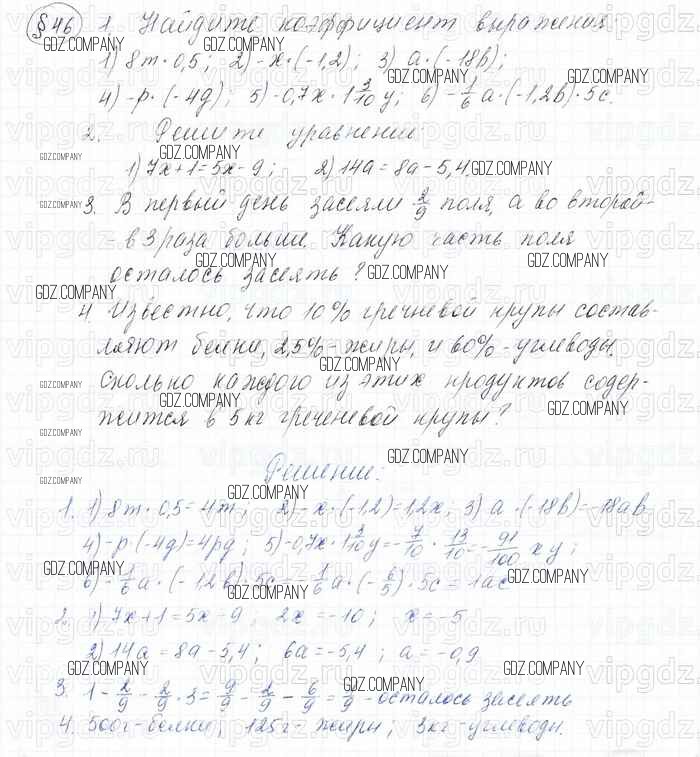 § 46 1. Найдите коэффициент выражения
1) 8m · 0,5; 2) -x · (-1,2); 3) a · (-18b);
4) -p · (-4q); 5) -0,7x · 1 3/10 y; 6) -1/6 a · (-1,2b) · 5c.
2. Решите уравнение:
1) 7x+1=5x-9; 2) 14a=8a-5,4.
3. В первый день засеяли 2/9 поля, а во второй-
- в 3 раза больше. Какую часть поля
осталось засеять?
4. Известно, что 10% гречневой крупы состав-
ляют белки, 2,5%-жиры, и 60%-углеводы.
Сколько каждого из этих продуктов содер-
жится в 5кг гречневой крупы?
Решение:
1. 1) 8m · 0,5=4m; 2) -x · (-1,2)=1,2x; 3) a · (-18b)=-18ab
4) -p · (-4q)=4pq; 5) -0,7x · 1 3/10 y=-7/10 · 13/10=-91/100 xy;
6) -1/6 a · (-1,2b) · 5c=-1/6 a · (-6/5) · 5c=1ac
2. 1) 7x+1=5x-9, 2x=-10; x=-5
2) 14a=8a-5,4; 6a=-5,4; a=-0,9
3. 1-2/9-2/9 · 3=9/9-2/9-6/9=1/9-осталось засеять
4. 500г-белки; 125г-жиры; 3кг-углеводы.
GDZ.COMPANY
vipgdz